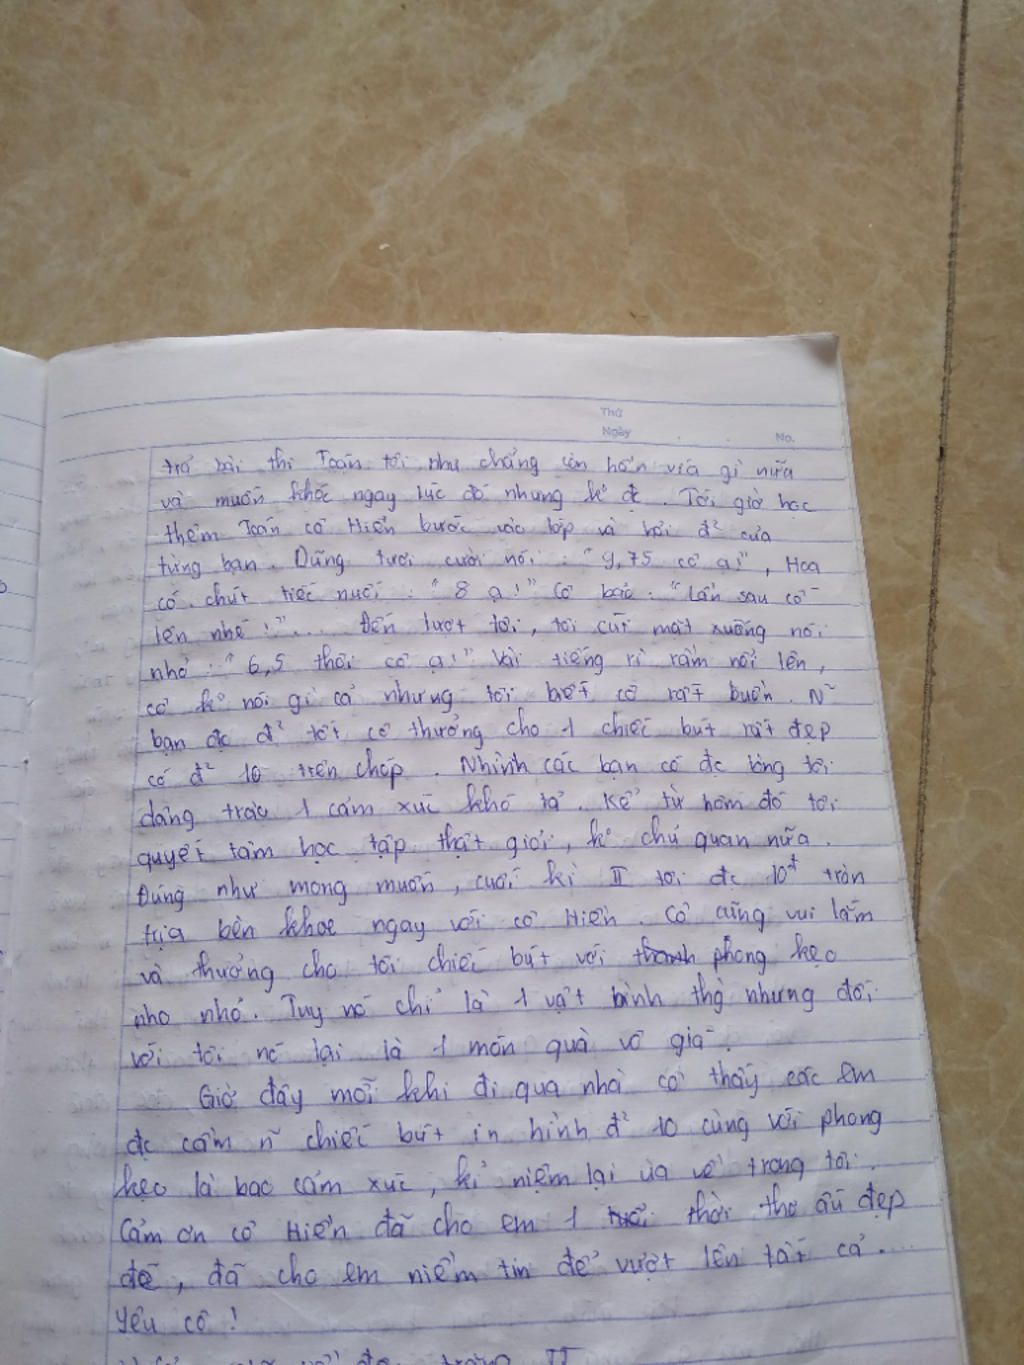 Thứ
Ngày . . No.
trả bài thi Toán tôi như chẳng còn hồn vía gì nữa
và muốn khóc ngay lúc đó nhưng k° đc. Tới giờ học
thêm Toán cô Hiền bước vào lớp và hỏi đ² của
từng bạn. Dũng tươi cười nói: "9,75 cô ạ!", Hoa
có chút tiếc nuối: "8 ạ!" Cô bảo: "lần sau cố
lên nhé!"... Đến lượt tôi, tôi cúi mặt xuống nói
nhỏ: "6,5 thôi cô ạ!" Vài tiếng rì rầm nổi lên,
cô k° nói gì cả nhưng tôi biết cô rất buồn. N~
bạn đc đ² tốt cô thưởng cho 1 chiếc bút rất đẹp
có đ² 10 trên chóp. Nhình các bạn có đc lòng tôi
dâng trào 1 cảm xúc khó tả. Kể từ hôm đó tôi
quyết tâm học tập thật giỏi, k° chủ quan nữa.
Đúng như mong muốn, cuối kì II tôi đc 10đ tròn
trịa bèn khoe ngay với cô Hiền. Cô cũng vui lắm
và thưởng cho tôi chiếc bút với phong kẹo
nho nhỏ. Tuy nó chỉ là 1 vật bình thg nhưng đối
với tôi nó lại là 1 món quà vô giá.
Giờ đây mỗi khi đi qua nhà cô thấy các em
đc cầm n~ chiếc bút in hình đ² 10 cùng với phong
kẹo là bao cảm xúc, kỉ niệm lại ùa về trong tôi.
Cảm ơn cô Hiền đã cho em 1 thời thơ ấu đẹp
đẽ, đã cho em niềm tin để vượt lên tất cả...
Yêu cô!